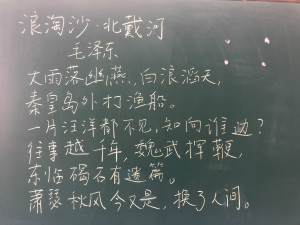 浪淘沙·北戴河
毛泽东
大雨落幽燕,白浪滔天,
秦皇岛外打渔船。
一片汪洋都不见,知向谁边?
往事越千年,魏武挥鞭,
东临碣石有遗篇。
萧瑟秋风今又是,换了人间。